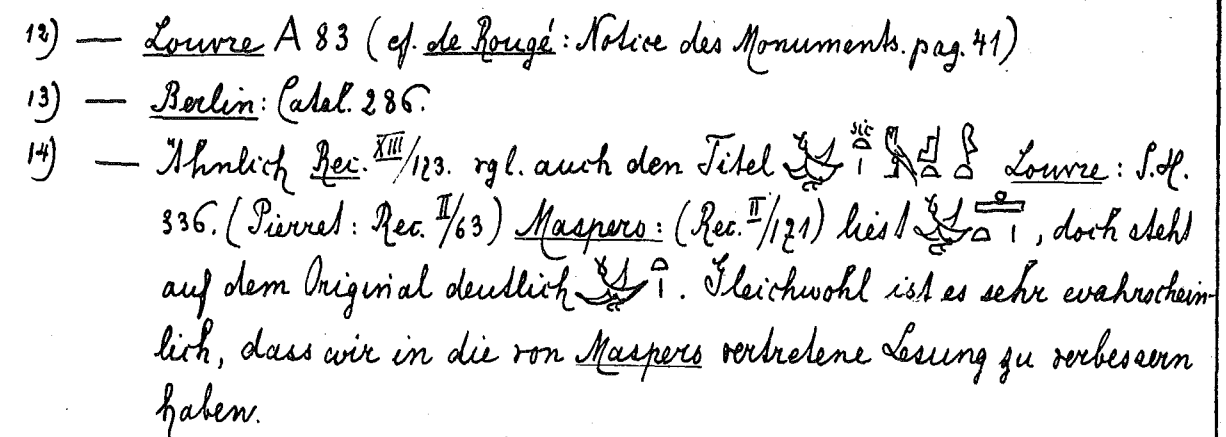 12) — Louvre A 83 (cf. de Rougé: Notice des Monuments. pag. 41)
13) — Berlin: Catal. 286.
14) — Ähnlich Rec. XIII/173. vgl. auch den Titel sic Louvre: S.H.
336. (Pierret: Rec. II/63) Maspero: (Rec. II/171) liest , doch steht
auf dem Original deutlich . Gleichwohl ist es sehr wahrschein-
lich, dass wir in die von Maspero vertretene Lesung zu verbessern
haben.